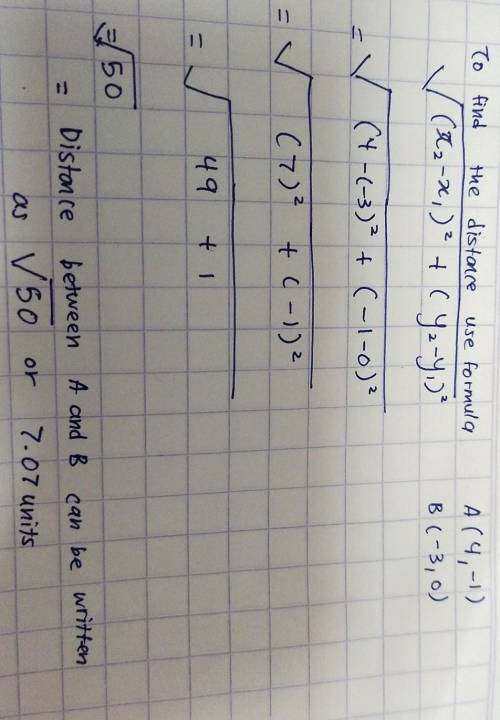 To find the distance use formula
√(x₂-x₁)² + (y₂-y₁)²
A(4,-1)
B(-3,0)
= √(4-(-3)² + (-1-0)²
= √(7)² + (-1)²
= √49 + 1
= √50
= Distance between A and B can be written
as √50 or 7.07 units